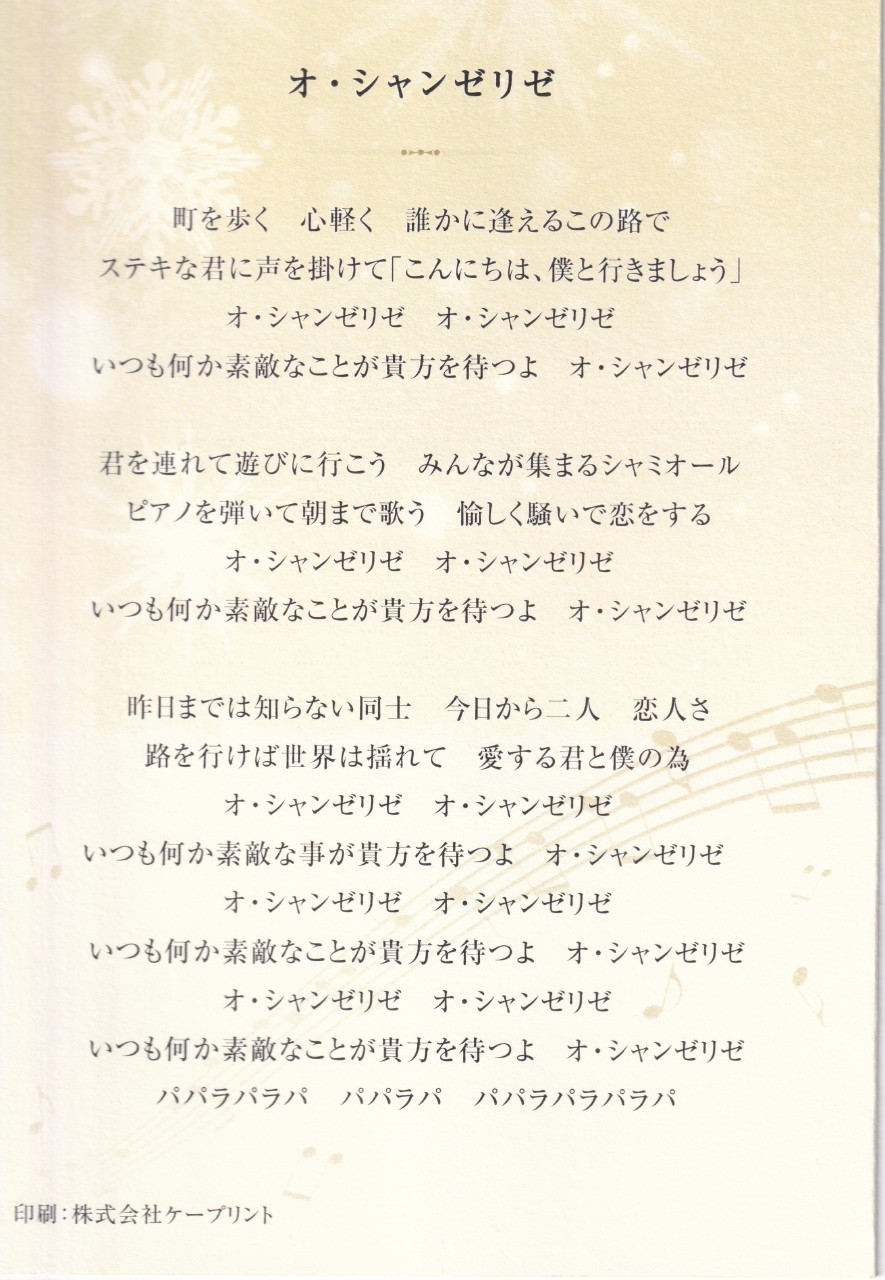 オ・シャンゼリゼ
町を歩く　心軽く　誰かに逢えるこの路で
ステキな君に声を掛けて「こんにちは、僕と行きましょう」
オ・シャンゼリゼ　オ・シャンゼリゼ
いつも何か素敵なことが貴方を待つよ　オ・シャンゼリゼ
君を連れて遊びに行こう　みんなが集まるシャミオール
ピアノを弾いて朝まで歌う　愉しく騒いで恋をする
オ・シャンゼリゼ　オ・シャンゼリゼ
いつも何か素敵なことが貴方を待つよ　オ・シャンゼリゼ
昨日までは知らない同士　今日から二人　恋人さ
路を行けば世界は揺れて　愛する君と僕の為
オ・シャンゼリゼ　オ・シャンゼリゼ
いつも何か素敵な事が貴方を待つよ　オ・シャンゼリゼ
オ・シャンゼリゼ　オ・シャンゼリゼ
いつも何か素敵なことが貴方を待つよ　オ・シャンゼリゼ
オ・シャンゼリゼ　オ・シャンゼリゼ
いつも何か素敵なことが貴方を待つよ　オ・シャンゼリゼ
パパラパラパ　パパラパ　パパラパラパラパ
印刷：株式会社ケープリント